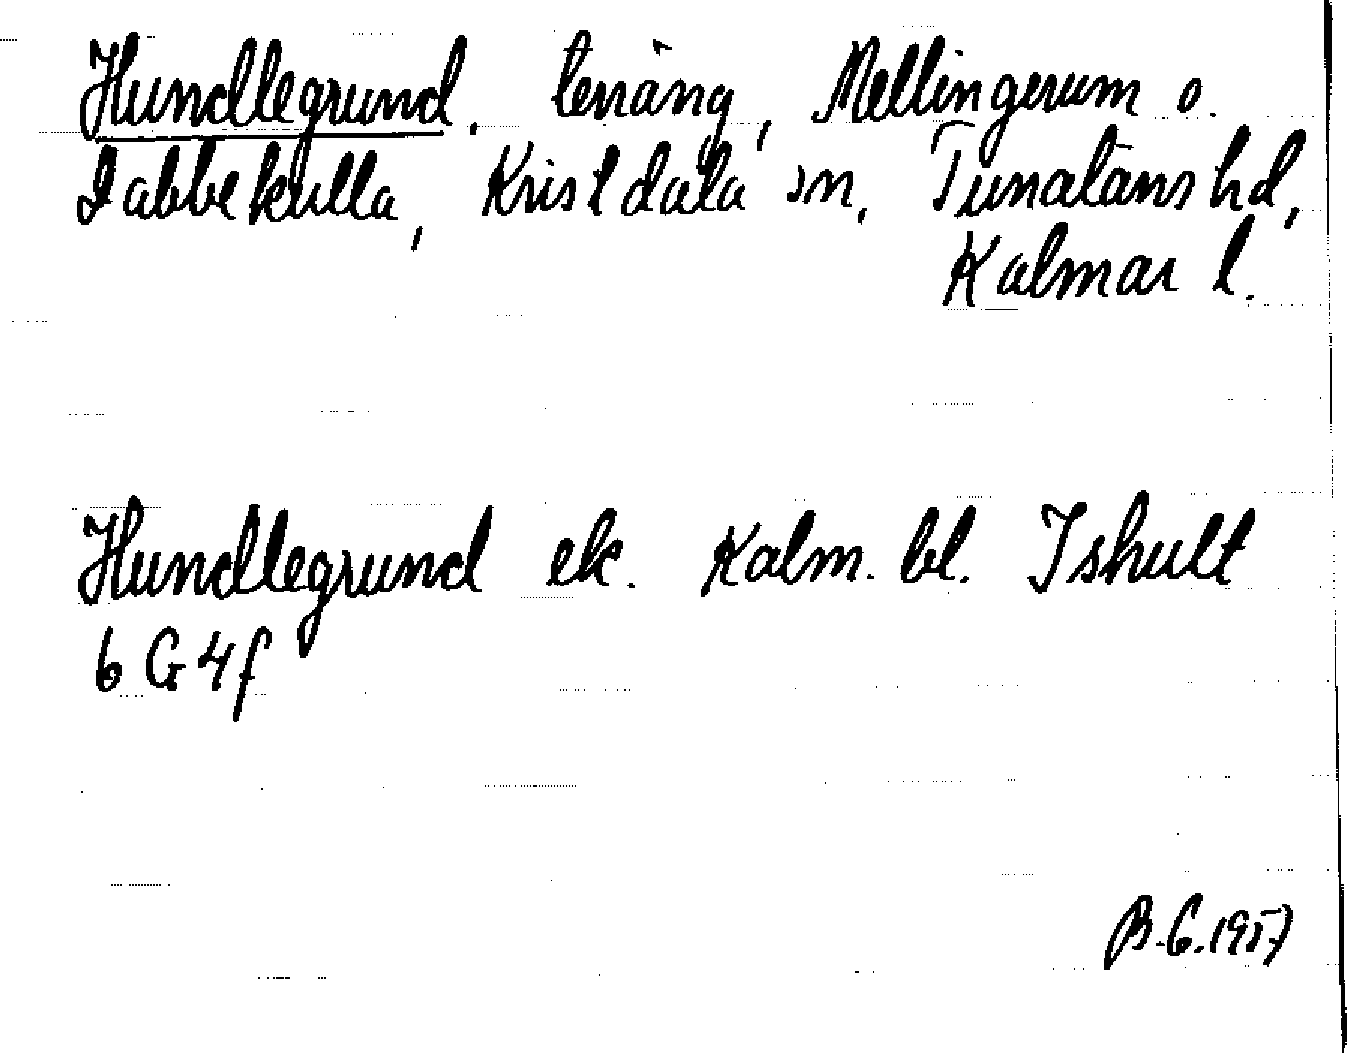 Hundlegrund. terräng, Mellingerum o.
Dabbekulla, Kristdala sn, Tunaläns hd,
Kalmar l.
Hundlegrund ek. Kalm. bl. Ishult
6 G 4f
B.G. 1957